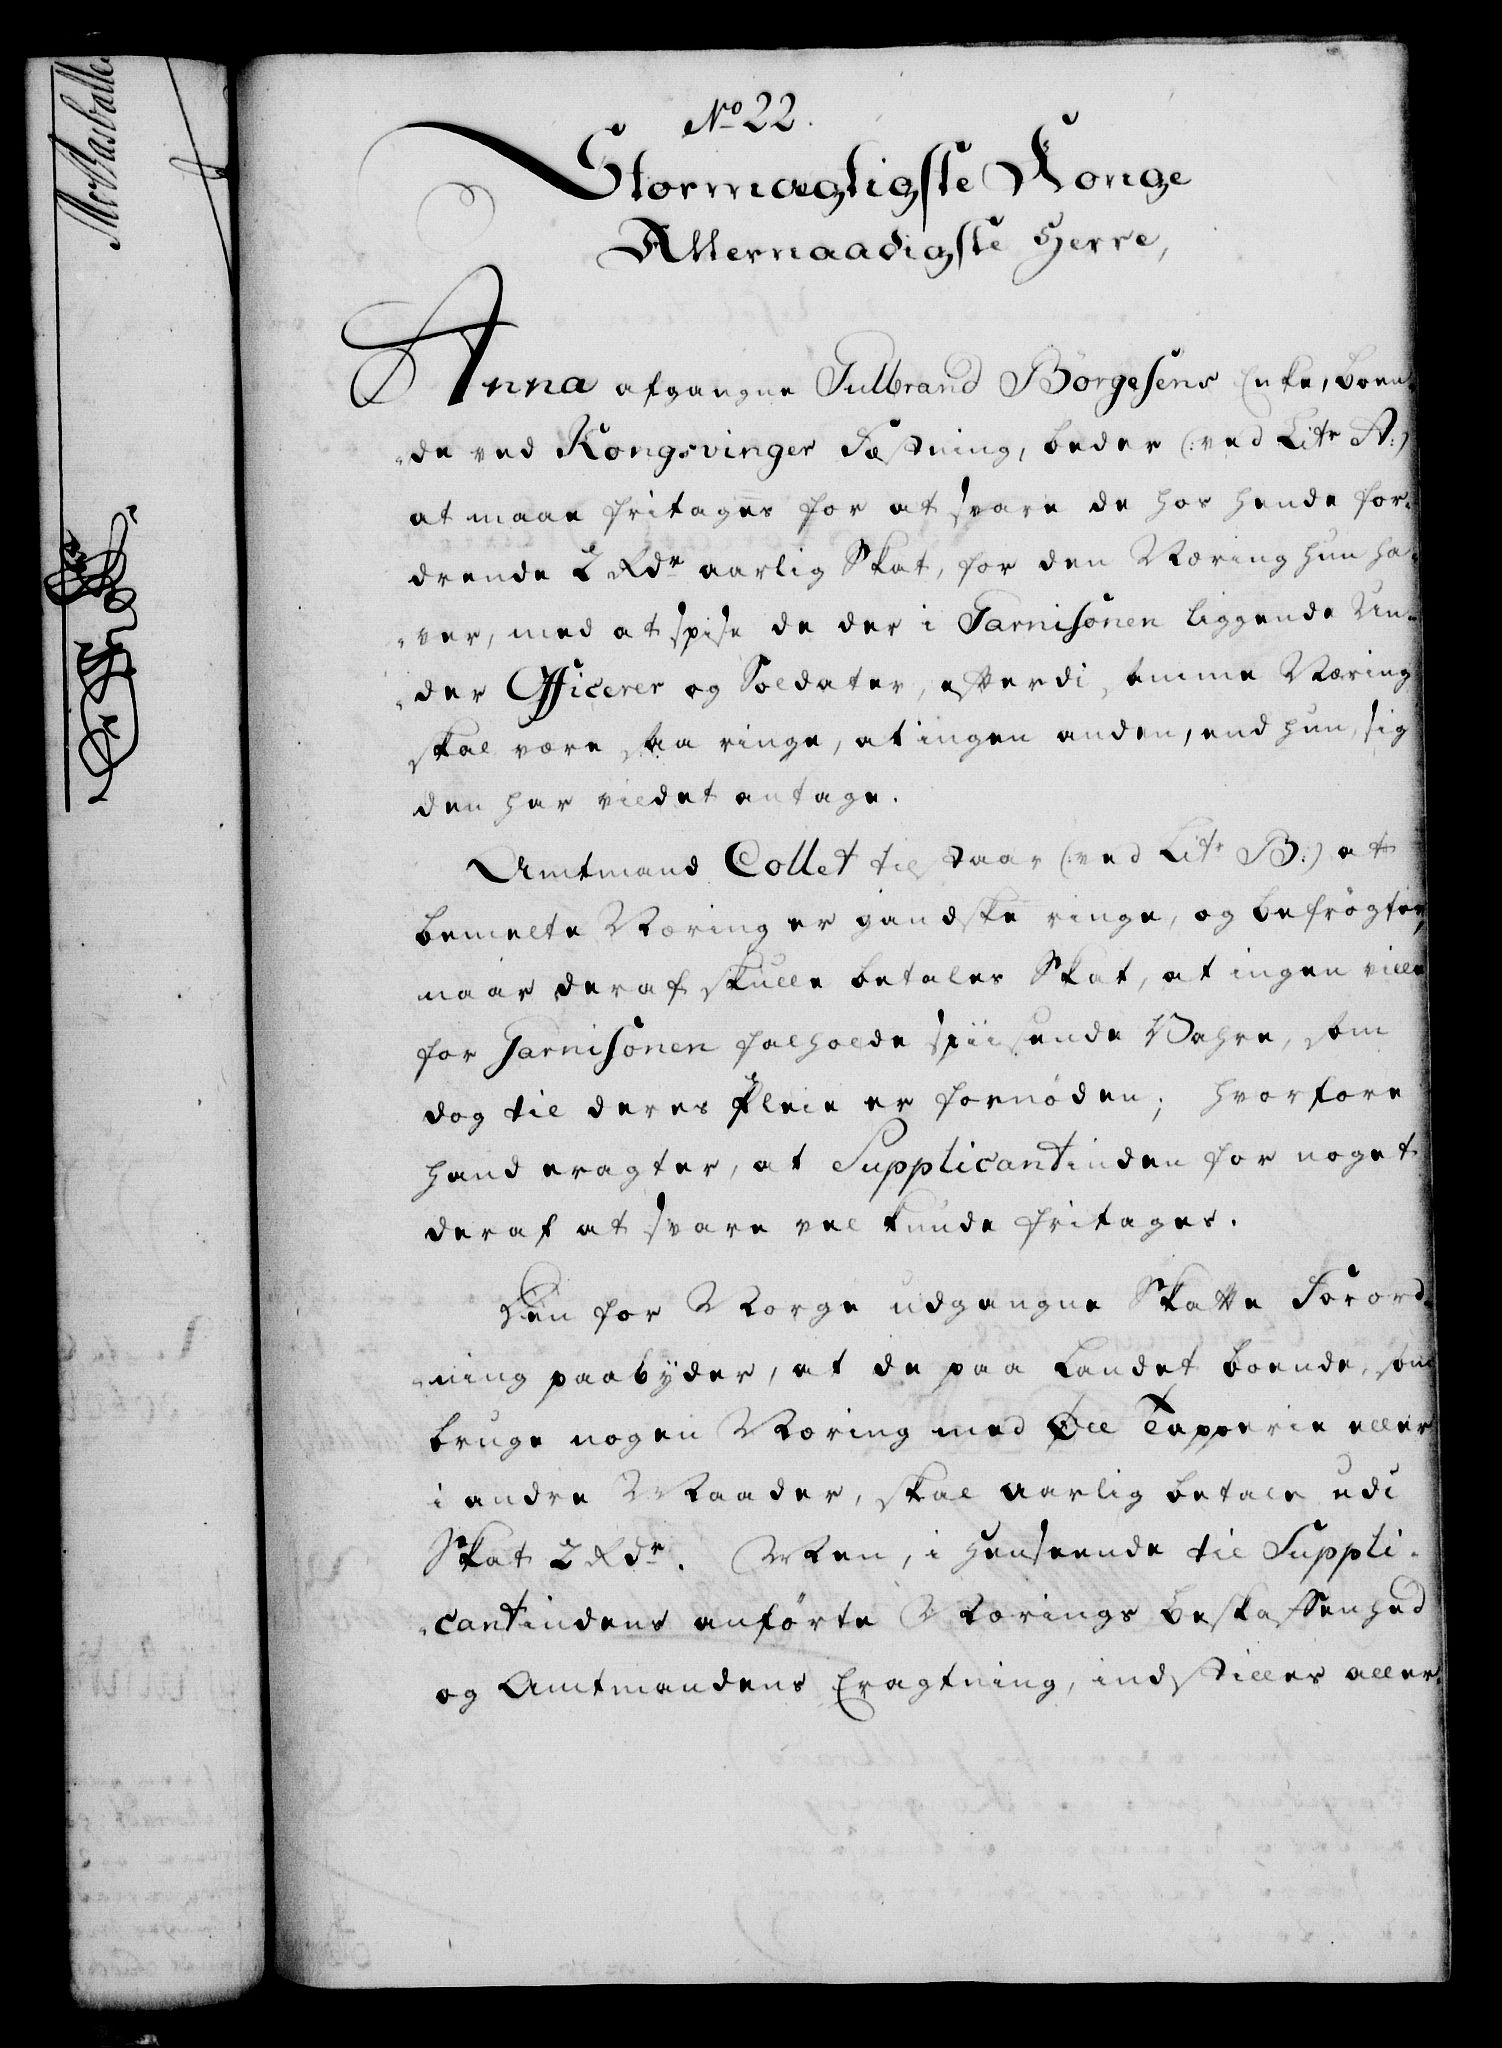 No 22.
Stormægtigste Konge
Allernaadigste Herre,
Anna afgangne Gulbrand Börgesens Enke, boen¬
„de ved Kongsvinger Fæstning, beder (: ved Litr A:)
at maae fritages for at svare de hos hende for¬
drende 2 Rdr aarlig Skat, for den Næring hun ha¬
„ver, med at spise de der i Garnisonen liggende Un¬
„der Officerer og Soldater, efterdi samme Næring
skal være saa ringe, at ingen anden, end hun, sig
den har vildet antage.
Amtmand Collet tilstaar (: ved Litr B:) at
bemelte Næring er gandske ringe, og befrögter,
naar deraf skulle betales Skat, at ingen ville
for Garnisonen falholde spiisende Vahre, som
dog til deres Pleie er fornöden; hvorfore
hand eragter, at Supplicantinden for noget
deraf at svare vel kunde fritages.
Den for Norge udgangne Skatte Forord¬
„ning paabyder, at de paa Landet boende, som
bruge nogen Næring med Öll Tapperie eller
i andre Maader, skal aarlig betale udi
Skat 2 Rdr. Men, i Henseende til Suppli¬
„cantindens anförte Nærings beskaffenhed
og Amtmandens Eragtning, indstilles aller¬